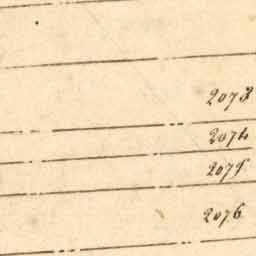 2073
2074
2075
2076